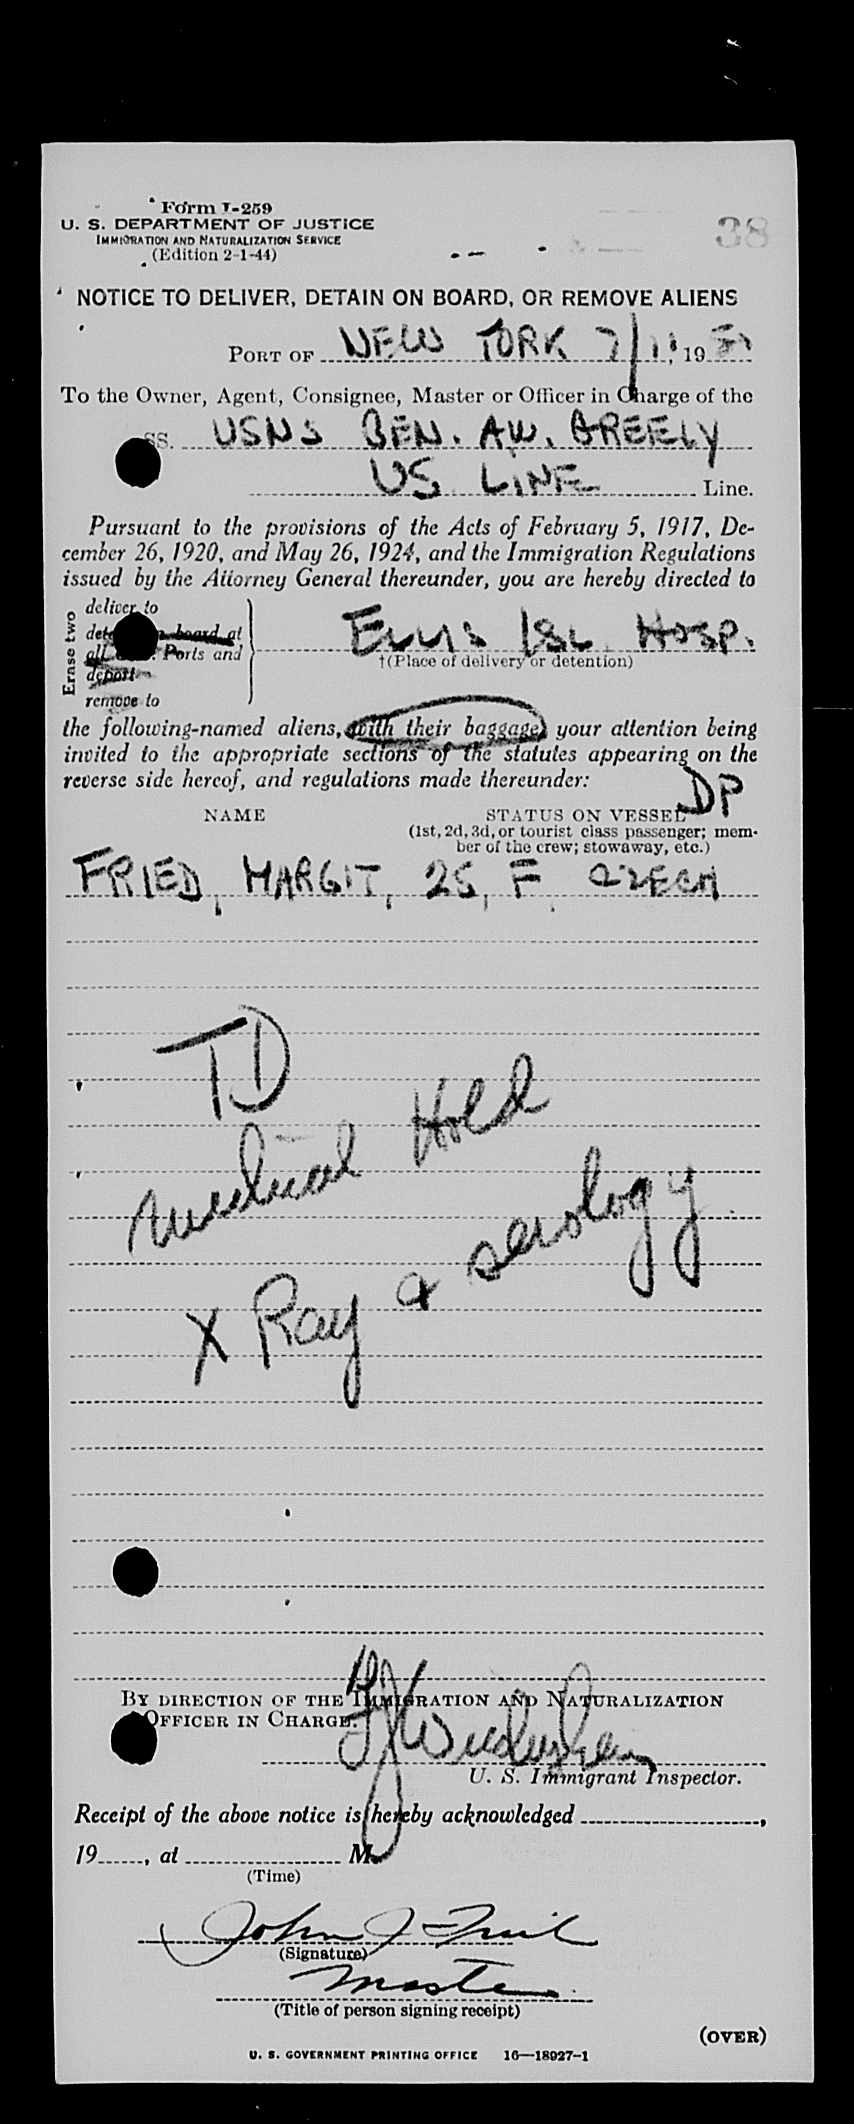 Form I-259
U. S. DEPARTMENT OF JUSTICE
IMMIGRATION AND NATURALIZATION SERVICE
(Edition 2-1-44)
38
NOTICE TO DELIVER, DETAIN ON BOARD, OR REMOVE ALIENS
PORT OF NEW YORK 7/11, 19 51
To the Owner, Agent, Consignee, Master or Officer in Charge of the
SS. USNS GEN. A.W. GREELY
US LINE Line.
Pursuant to the provisions of the Acts of February 5, 1917, De-
cember 26, 1920, and May 26, 1924, and the Immigration Regulations
issued by the Attorney General thereunder, you are hereby directed to
Erase two
deliver to
board at
Ports and
deport
remove to
ELLIS ISL. HOSP.
†(Place of delivery or detention)
the following-named aliens, with their baggage, your attention being
invited to the appropriate sections of the statutes appearing on the
reverse side hereof, and regulations made thereunder:
DP
NAME STATUS ON VESSEL
(1st, 2d, 3d, or tourist class passenger; mem-
ber of the crew; stowaway, etc.)
FRIED, MARGIT, 25, F, CZECH
TD
Medical Hold
X Ray & serology
BY DIRECTION OF THE IMMIGRATION AND NATURALIZATION
OFFICER IN CHARGE.
U. S. Immigrant Inspector.
Receipt of the above notice is hereby acknowledged ,
19 , at M.
(Time)
John J
(Signature)
Master
(Title of person signing receipt)
(OVER)
U. S. GOVERNMENT PRINTING OFFICE 16—18927-1